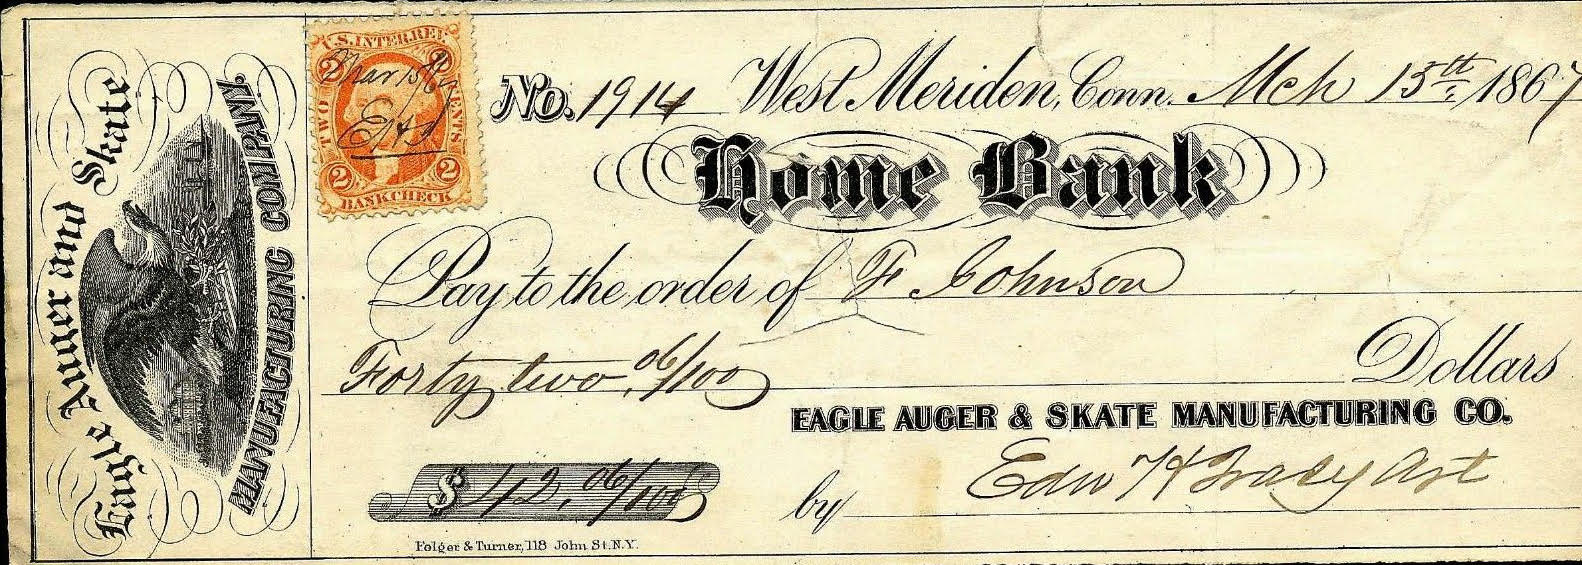 Eagle Auger and Skate
MANUFACTURING COMPANY.
U.S. INTER. REV.
2 2
TWO CENTS
Mar 15/67
2 2
BANK CHECK
No. 1914 West Meriden, Conn. Mch 15th, 1867
Home Bank
Pay to the order of F. Johnson
Forty two, 06/100 Dollars
EAGLE AUGER & SKATE MANUFACTURING CO.
$ 42, 06/100
by Edw H Tracy
Folger & Turner, 118 John St. N.Y.